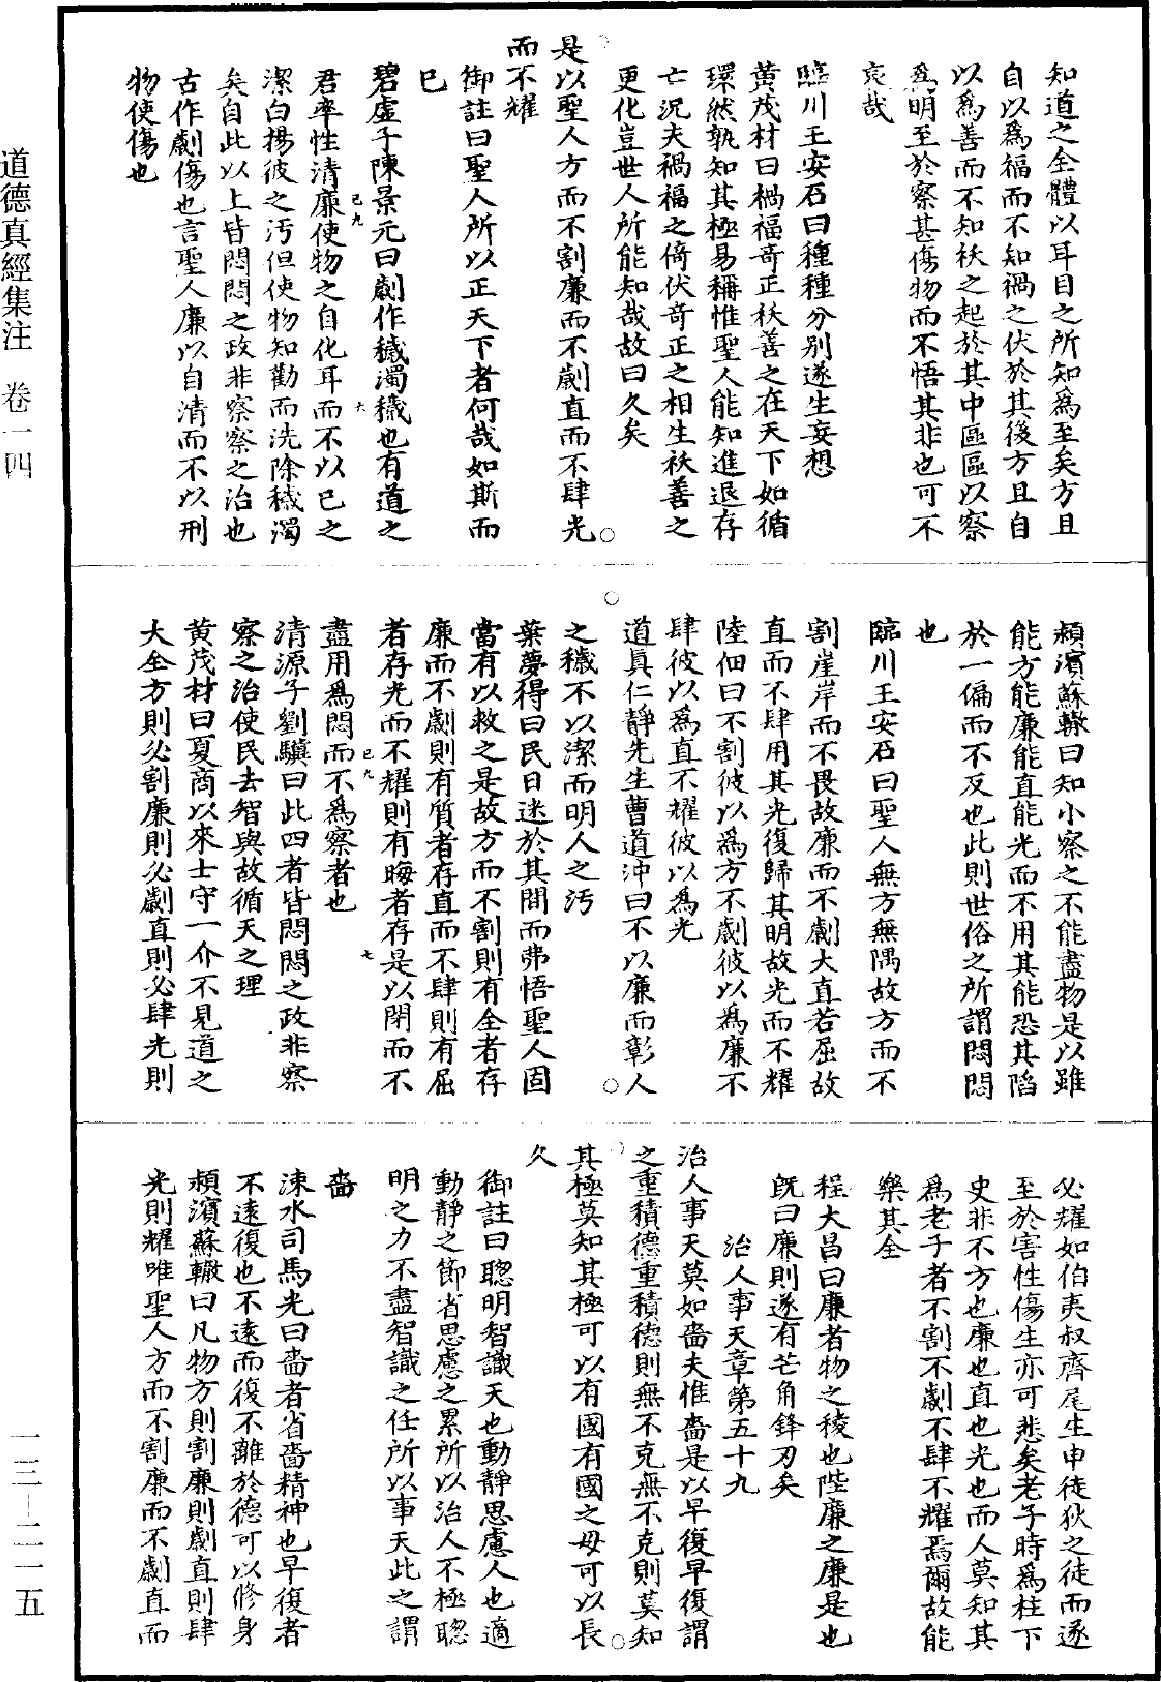 知道之全體以耳目之所知為至矣方且
自以為福而不知禍之伏於其後方且自
以為善而不知祅之起於其中區區以察
為明至於察甚傷物而不悟其非也可不
哀哉
臨川王安石曰種種分別遂生妄想
黃茂材曰禍福奇正祅善之在天下如循
環然孰知其極易稱惟聖人能知進退存
亡況夫禍福之倚伏奇正之相生祅善之
更化豈世人所能知哉故曰久矣
是以聖人方而不割廉而不劌直而不肆光
而不耀
御註曰聖人所以正天下者何哉如斯而
已
碧虛子陳景元曰劌作穢濁穢也有道之
君率性清廉使物之自化耳而不以已之
潔白揚彼之污但使物知勸而洗除穢濁
矣自此以上皆悶悶之政非察察之治也
古作劌傷也言聖人廉以自清而不以刑
物使傷也
已九
六
潁濱蘇轍曰知小察之不能盡物是以雖
能方能廉能直能光而不用其能恐其陷
於一偏而不反也此則世俗之所謂悶悶
也
臨川王安石曰聖人無方無隅故方而不
割崖岸而不畏故廉而不劌大直若屈故
直而不肆用其光復歸其明故光而不耀
陸佃曰不割彼以為方不劌彼以為廉不
肆彼以為直不耀彼以為光
道真仁靜先生曹道沖曰不以廉而彰人
之穢不以潔而明人之污
葉夢得曰民日迷於其間而弗悟聖人固
當有以救之是故方而不割則有全者存
廉而不劌則有質者存直而不肆則有屈
者存光而不耀則有晦者存是以閉而不
盡用為悶而不為察者也
清源子劉驥曰此四者皆悶悶之政非察
察之治使民去智與故循天之理
黃茂材曰夏商以來士守一介不見道之
大全方則必割廉則必劌直則必肆光則
已九
七
必耀如伯夷叔齊尾生申徒狄之徒而遂
至於害性傷生亦可悲矣老子時為柱下
史非不方也廉也直也光也而人莫知其
為老子者不割不劌不肆不耀焉爾故能
樂其全
程大昌曰廉者物之稜也陛廉之廉是也
既曰廉則遂有芒角鋒刃矣
治人事天章第五十九
治人事天莫如嗇夫惟嗇是以早復早復謂
之重積德重積德則無不克無不克則莫知
其極莫知其極可以有國有國之母可以長
久
御註曰聰明智識天也動靜思慮人也適
動靜之節省思慮之累所以治人不極聰
明之力不盡智識之任所以事天此之謂
嗇
涑水司馬光曰嗇者省嗇精神也早復者
不遠復也不遠而復不離於德可以修身
潁濱蘇轍曰凡物方則割廉則劌直則肆
光則耀唯聖人方而不割廉而不劌直而
道德真經集注 卷一四
一三—二一五